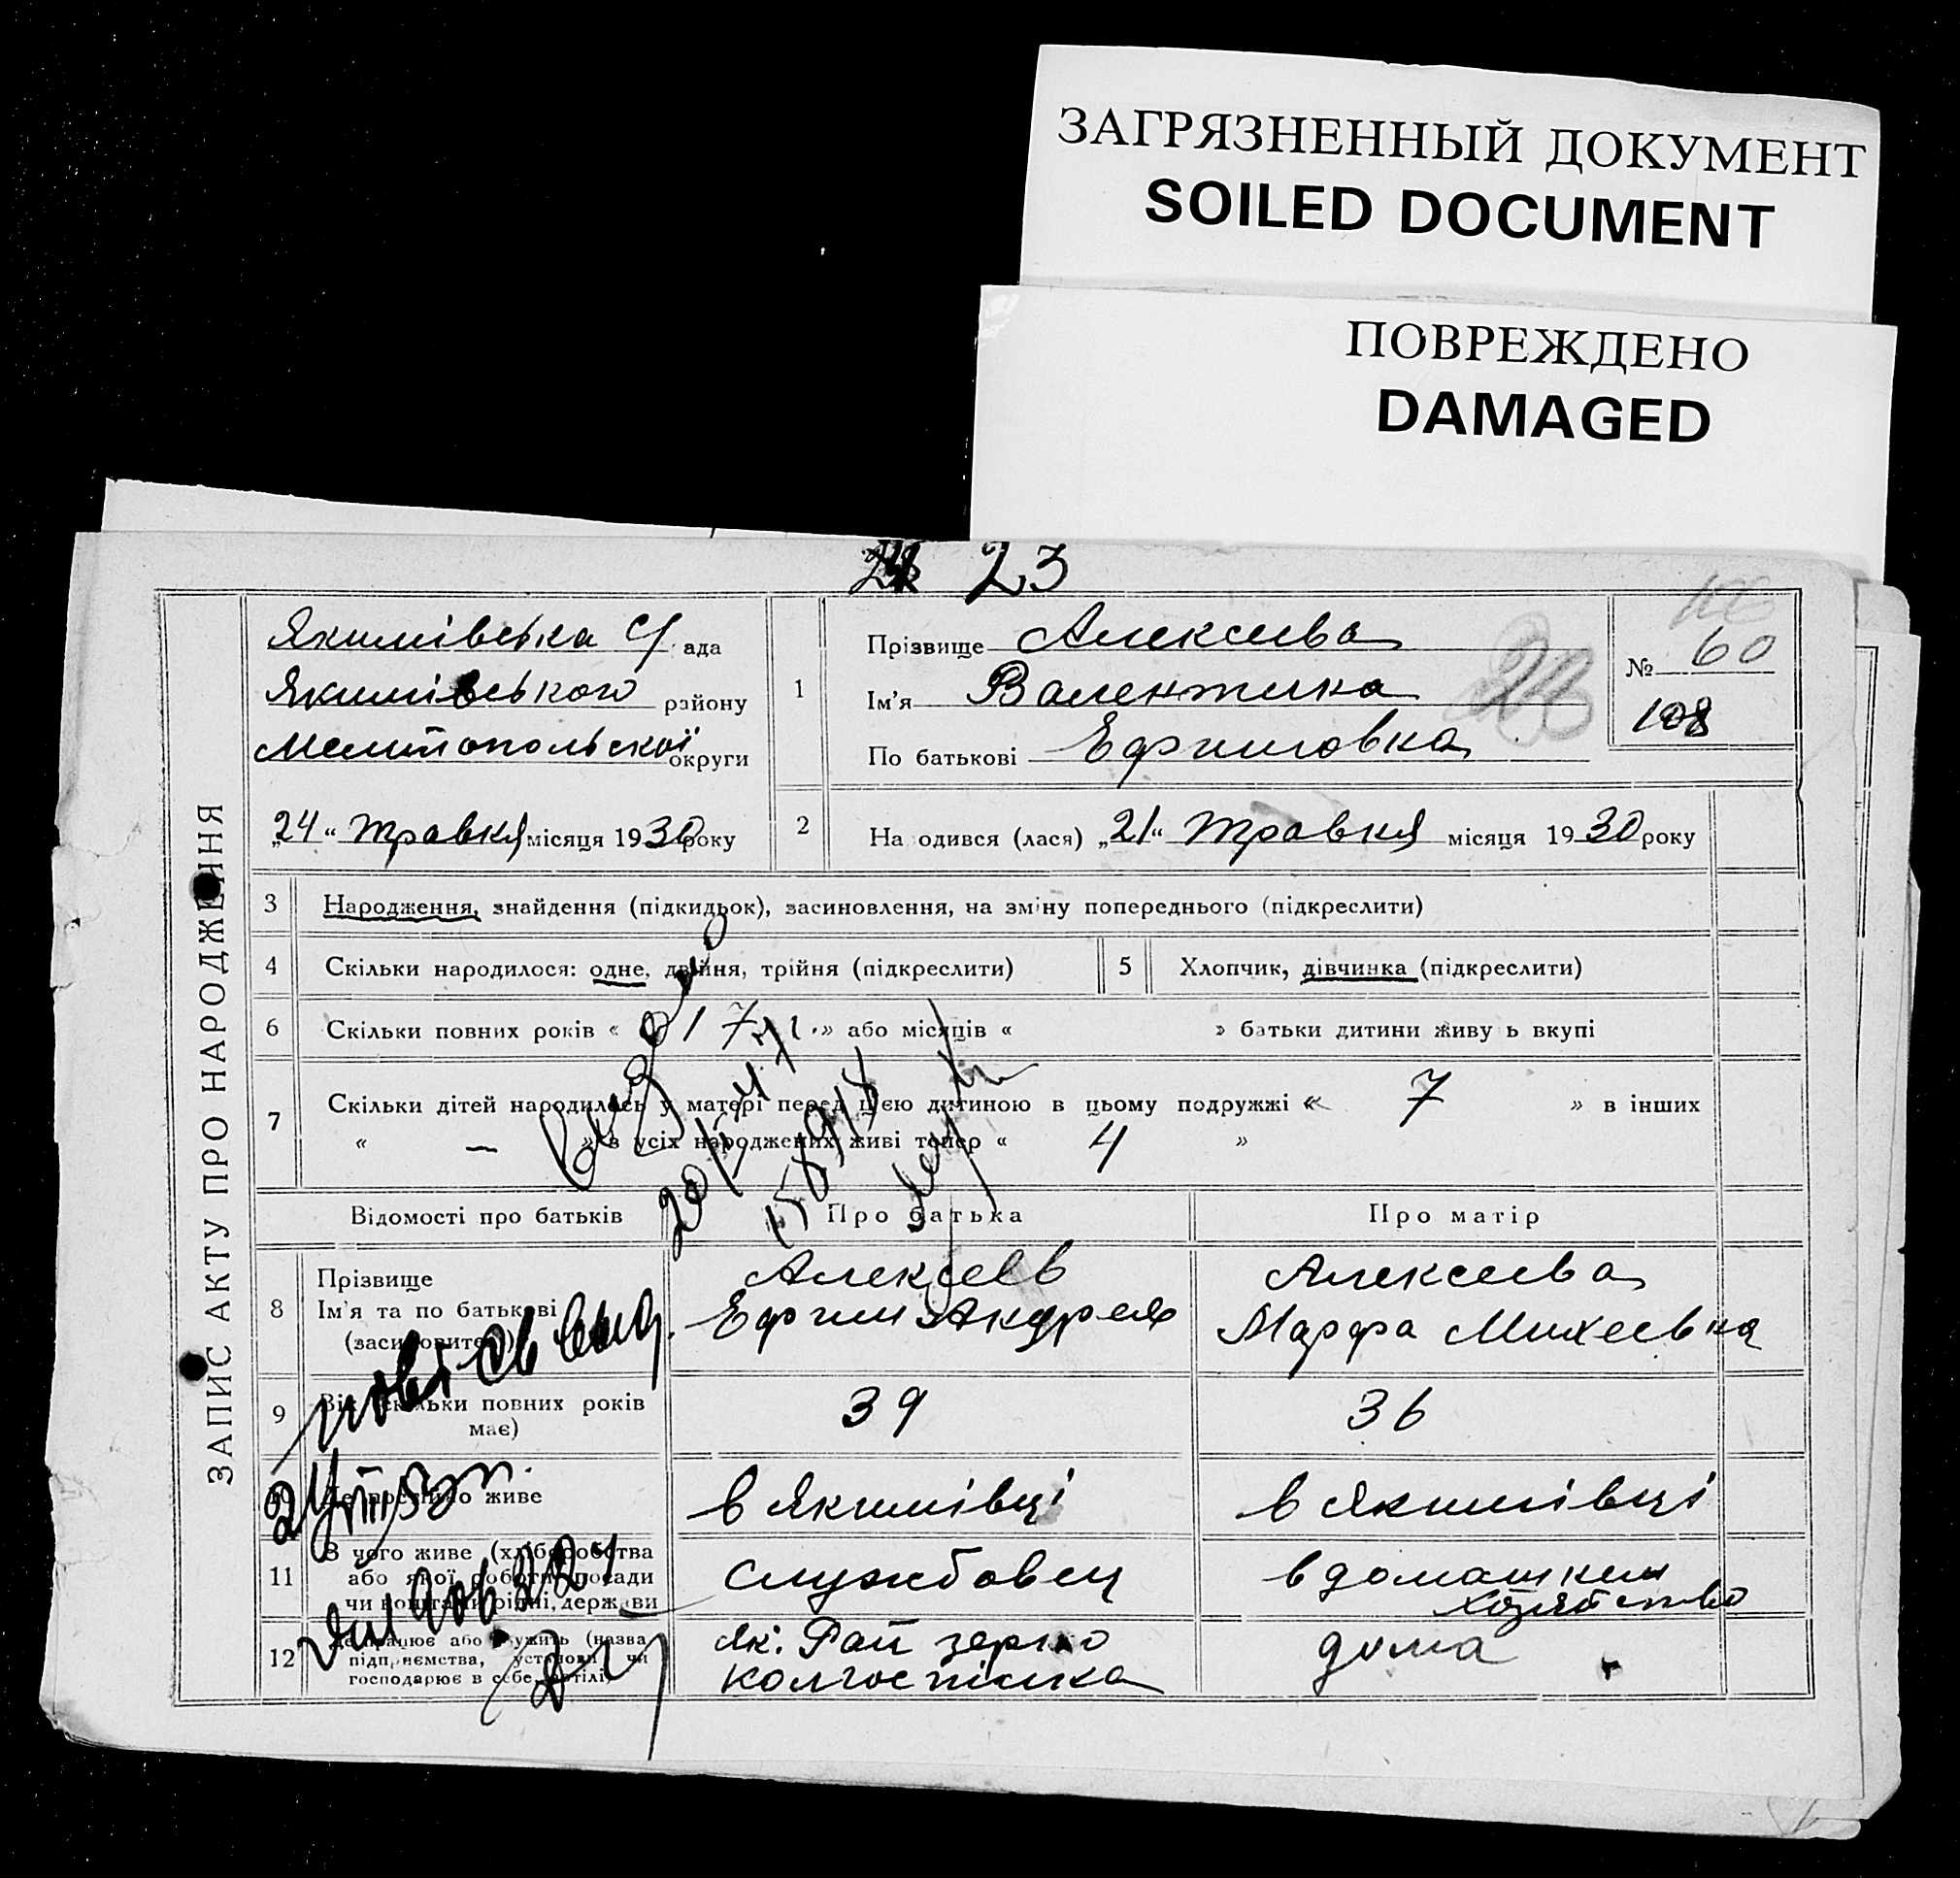 ЗАГРЯЗНЕННЫЙ ДОКУМЕНТ
SOILED DOCUMENT
ПОВРЕЖДЕНО
DAMAGED
23
ЗАПИС АКТУ ПРО НАРОДЖЕННЯ
Якимівська С/ ада
Якимівського району
Мелитопольскої округи
„24“ травня місяця 1930 року
1
Прізвище Алексеева
Ім'я Валентина
По батькові Ефимовна
№ 60
108
2 На одився (лася) „21“ травня місяця 1930 року
3 Народження, знайдення (підкидьок), засиновлення, на зміну попереднього (підкреслити)
4 Скільки народилося: одне, двійня, трійня (підкреслити)
5 Хлопчик, дівчинка (підкреслити)
6 Скільки повних років « 17 » або місяців « » батьки дитини живу ь вкупі
7 Скільки дітей народилось у матері перед цією дитиною в цьому подружжі « 7 » в інших
« — » в усіх народжених живі тепер « 4 »
Видано
Відомості про батьків Про батька Про матір
8 Прізвище
Ім'я та по батькові
(засиновителів)
Алексеев
Ефим Андрея
Алексеева
Марфа Михеевна
9 Вік (скільки повних років
має)
39 36
де постійно живе
в Якимівці в Якимівці
11 З чого живе (хліборобства
або якої роботи, посади
чи кошта ми рідні, держави
службовец
в домашнем
хозяйство
12 Де працює або служить (назва
підприємства, установи чи
господарює в себе, артілі)
Як. Рай зерно
колгоспілка
дома